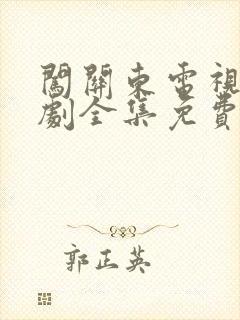 闖關東電視
劇全集免費
郭正英